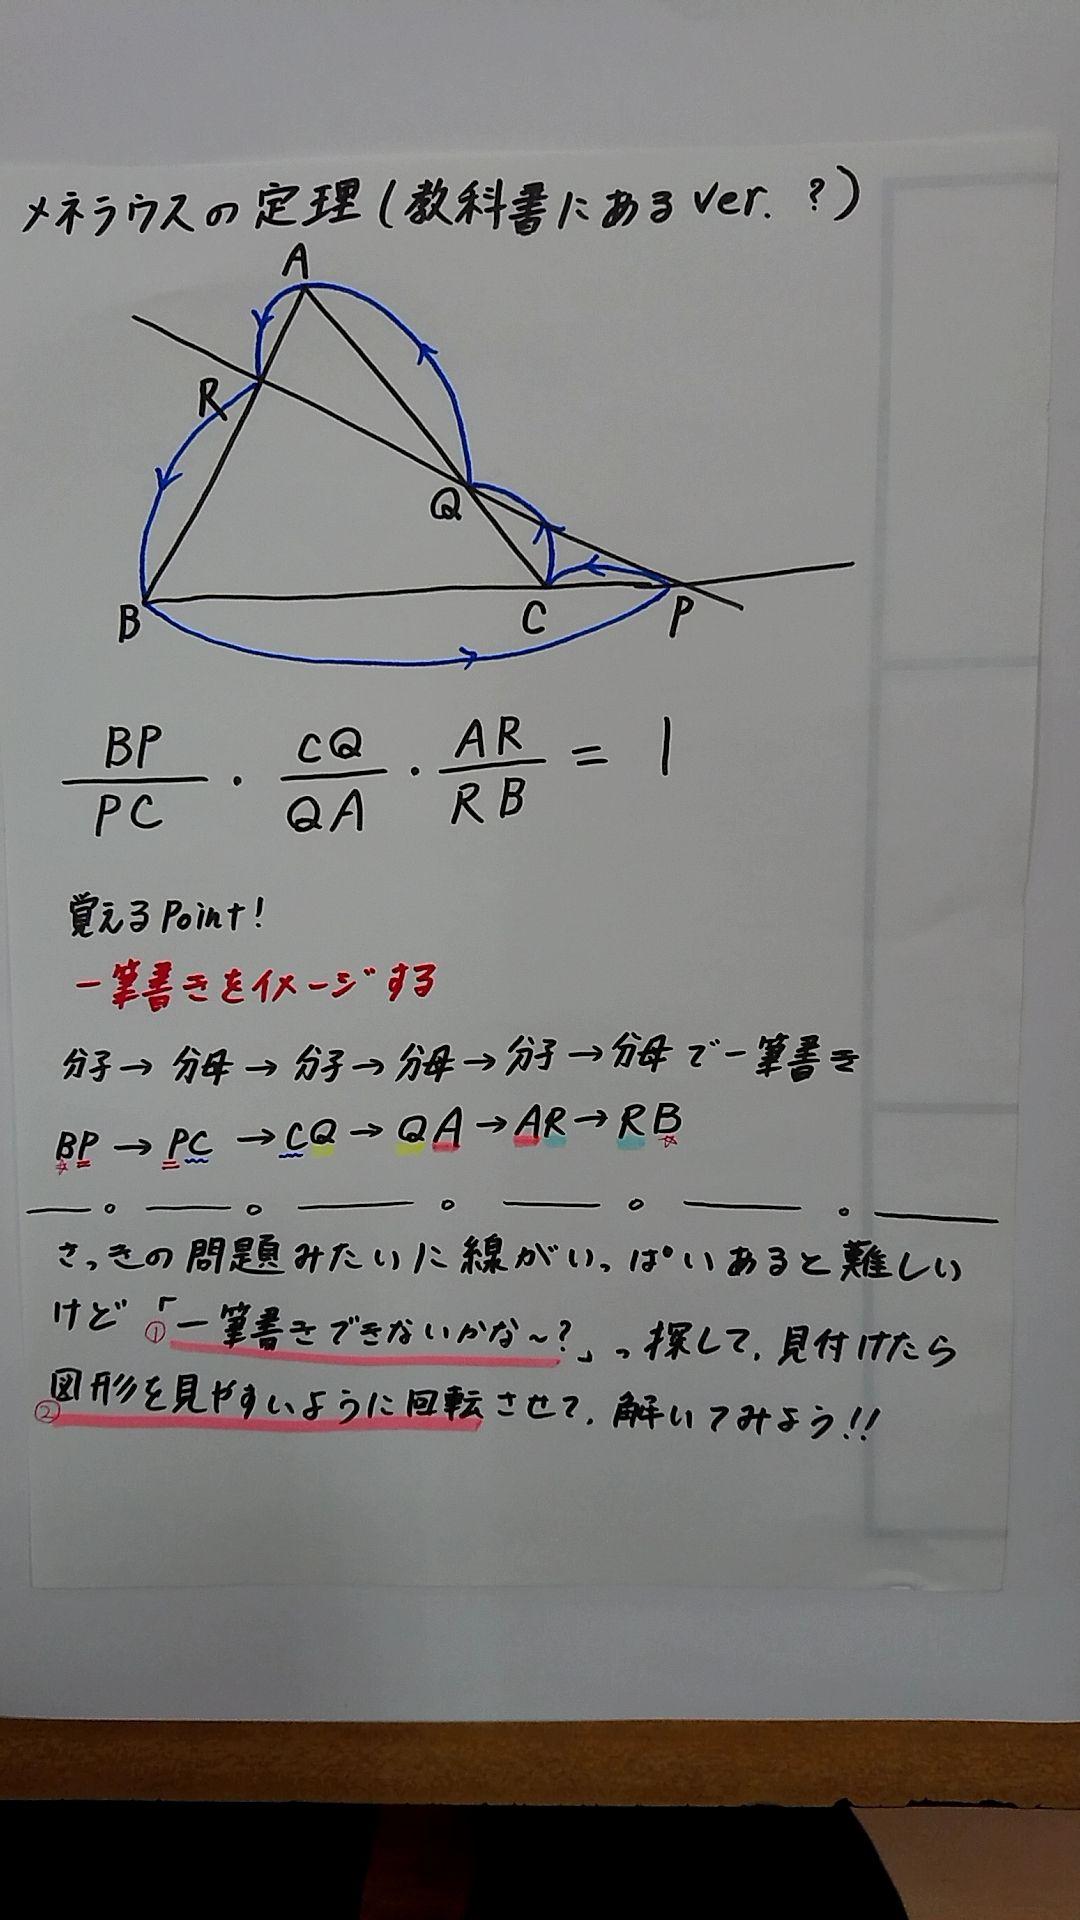 メネラウスの定理(教科書にあるver.?)
A
R
Q
B
C
P
BP/PC・CQ/QA・AR/RB=1
覚えるPoint!
一筆書きをイメージする
分子→分母→分子→分母→分子→分母で一筆書き
BP→PC→CQ→QA→AR→RB
さっきの問題みたいに線がいっぱいあると難しい
けど「①一筆書きできないかな~?」っ探して、見付けたら
②図形を見やすいように回転させて、解いてみよう!!